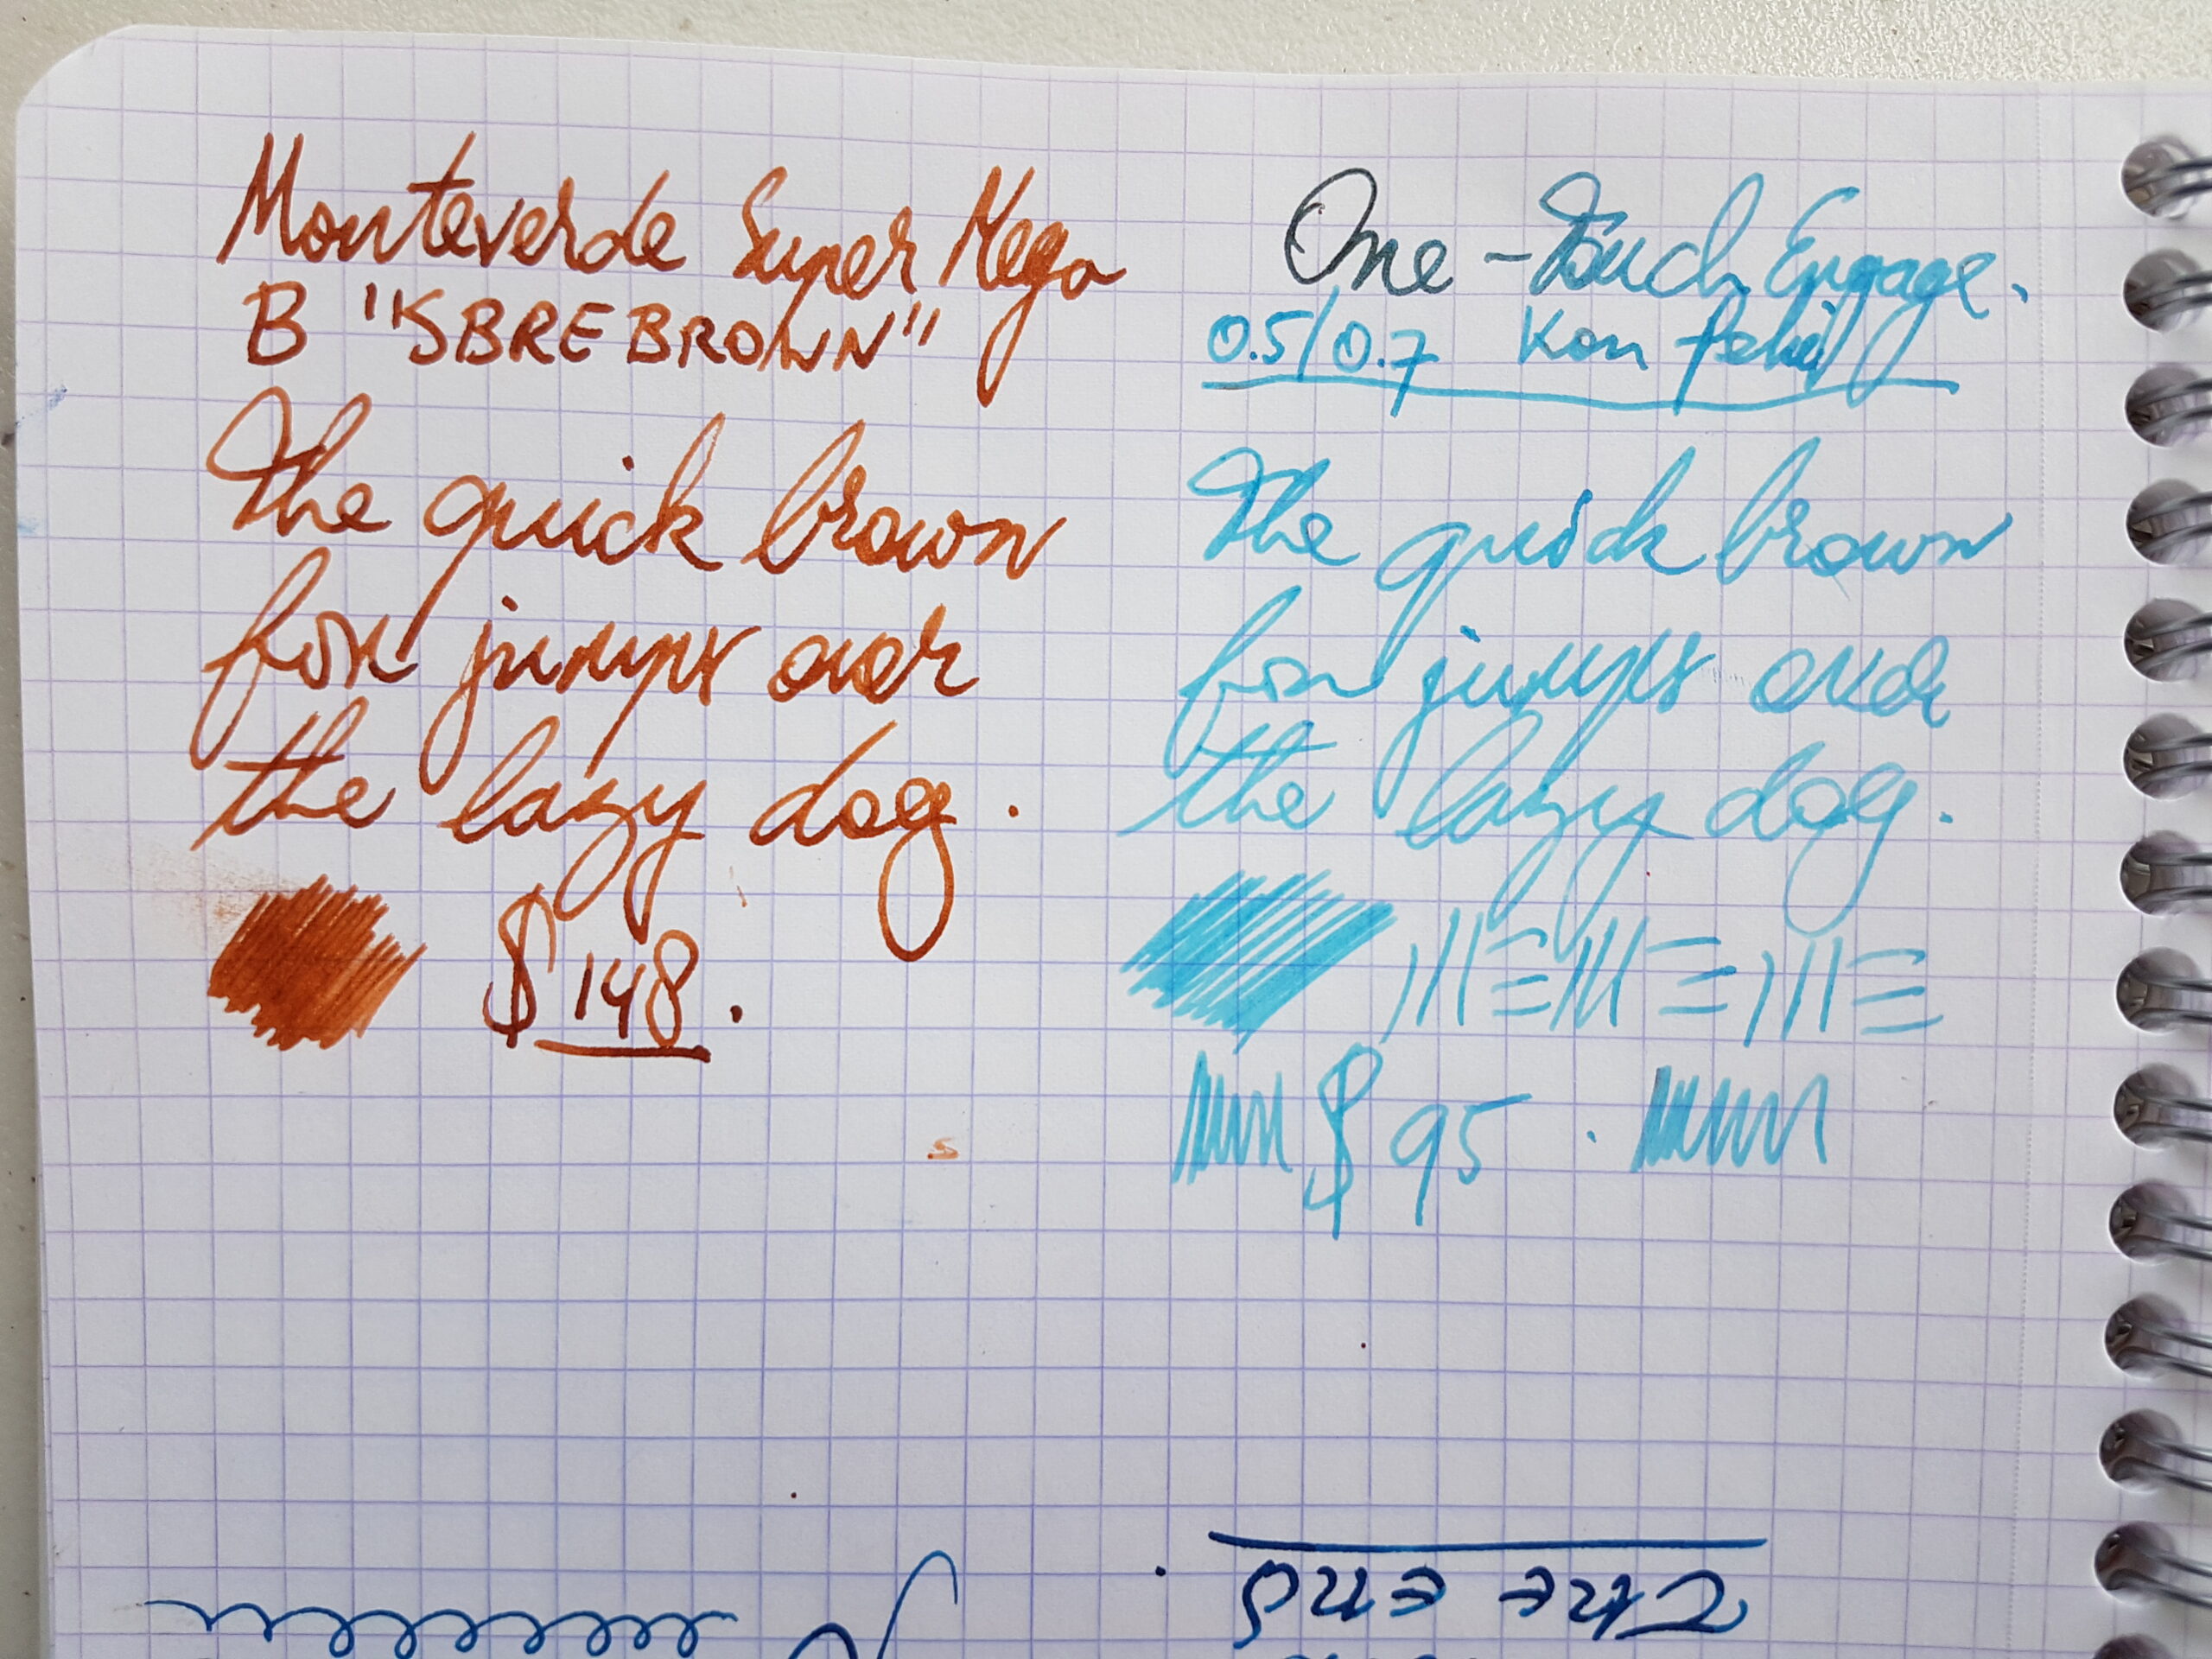 Monteverde Super Mega
B "SBRE BROWN"
The quick brown
fox jumps over
the lazy dog.
$148.
One-Touch Engage.
0.5/0.7 Kon
The quick brown
fox jumps over
the lazy dog.
$95.
The end